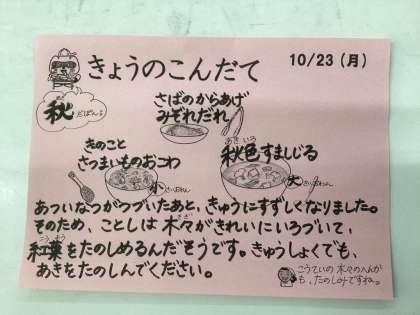 きょうのこんだて
10/23(月)
秋だぽん♪
さばのからあげ
みぞれだれ
きのこと
さつまいものおこわ
小さいおわん
あき いろ
秋色すましじる
大きいおわん
あついなつがつづいたあと、きゅうにすずしくなりました。
そのため、ことしは木々がきれいにいろづいて、
紅葉をたのしめるんだそうです。きゅうしょくでも、
あきをたのしんでください。
こうていの木々のへんか
も、たのしみですね。